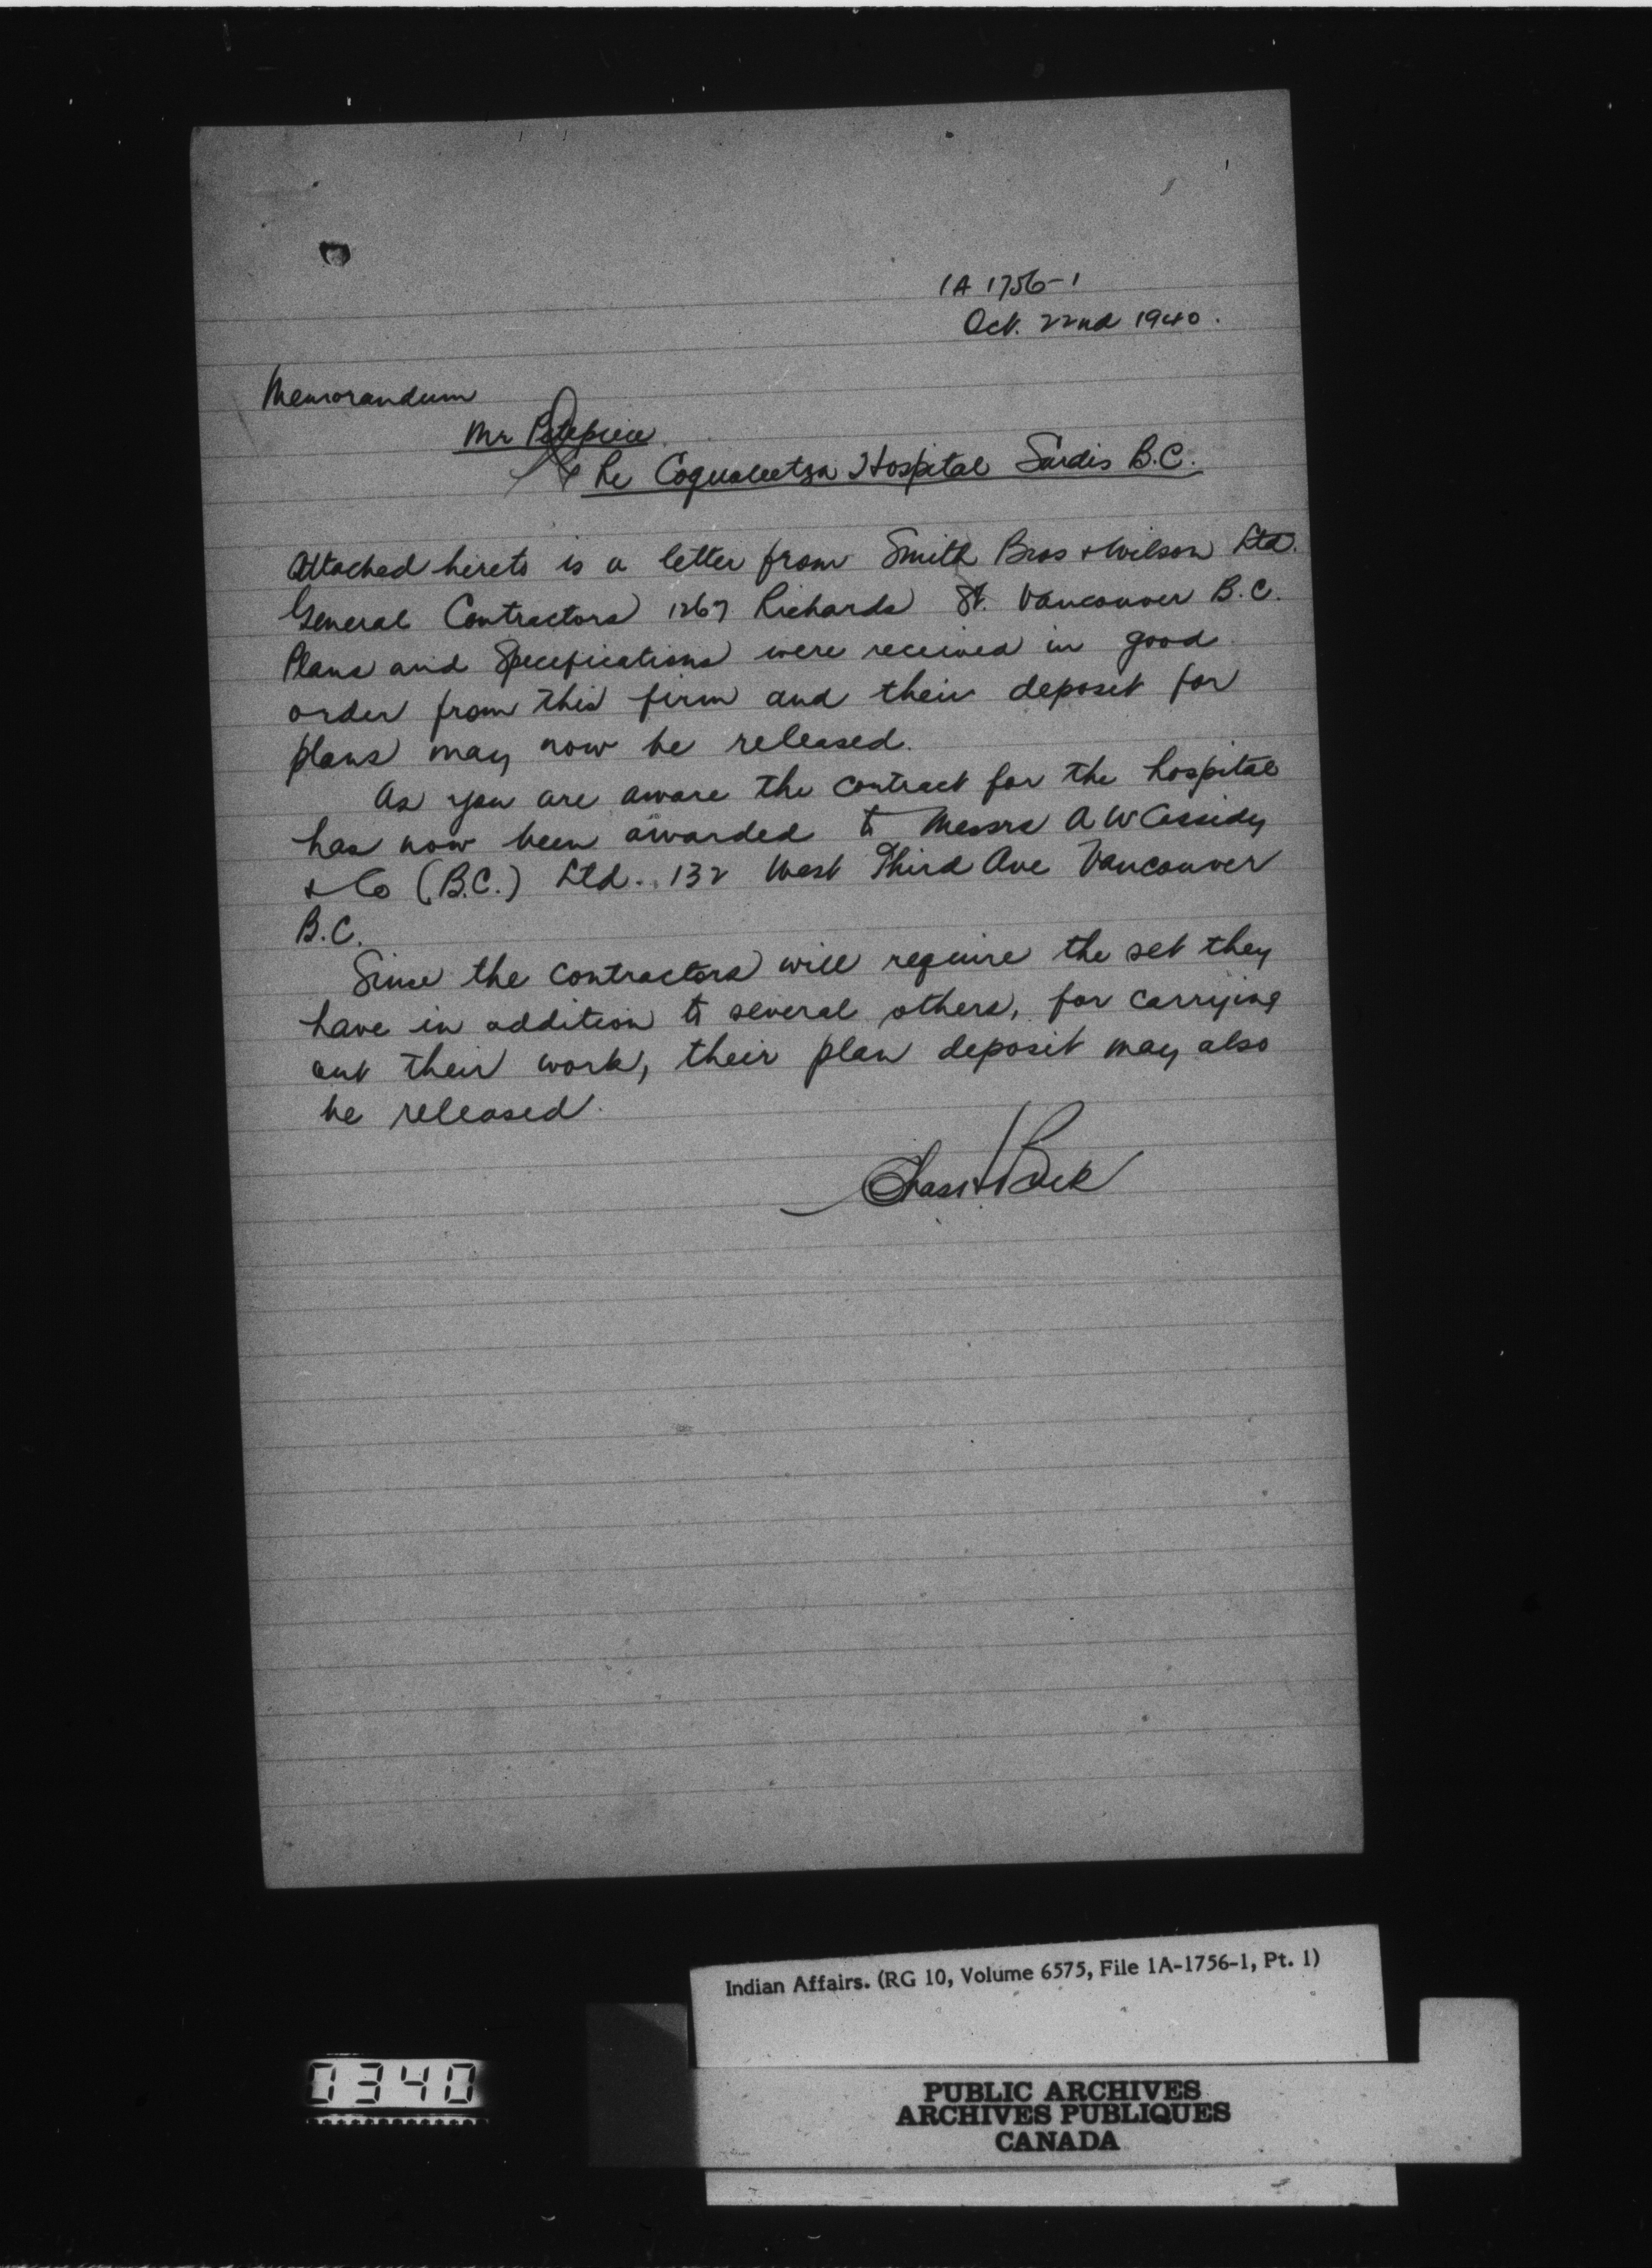 1A 1756-1
Oct. 22nd 1940.
Memorandum
Mr
Re Coqualeetza Hospital Sardis B.C.
Attached hereto is a letter from Smith Bros & Wilson Ltd.
General Contractors 1267 Richards St. Vancouver B.C.
Plans and Specifications were received in good
order from this firm and their deposit for
plans may now be released.
As you are aware the contract for the hospital
has now been awarded to Messrs A W Cassidy
& Co (B.C.) Ltd. 132 West Third Ave Vancouver
B.C.
Since the contractors will require the set they
have in addition to several others, for carrying
out their work, their plan deposit may also
be released.
Indian Affairs. (RG 10, Volume 6575, File 1A-1756-1, Pt. 1)
0340
PUBLIC ARCHIVES
ARCHIVES PUBLIQUES
CANADA